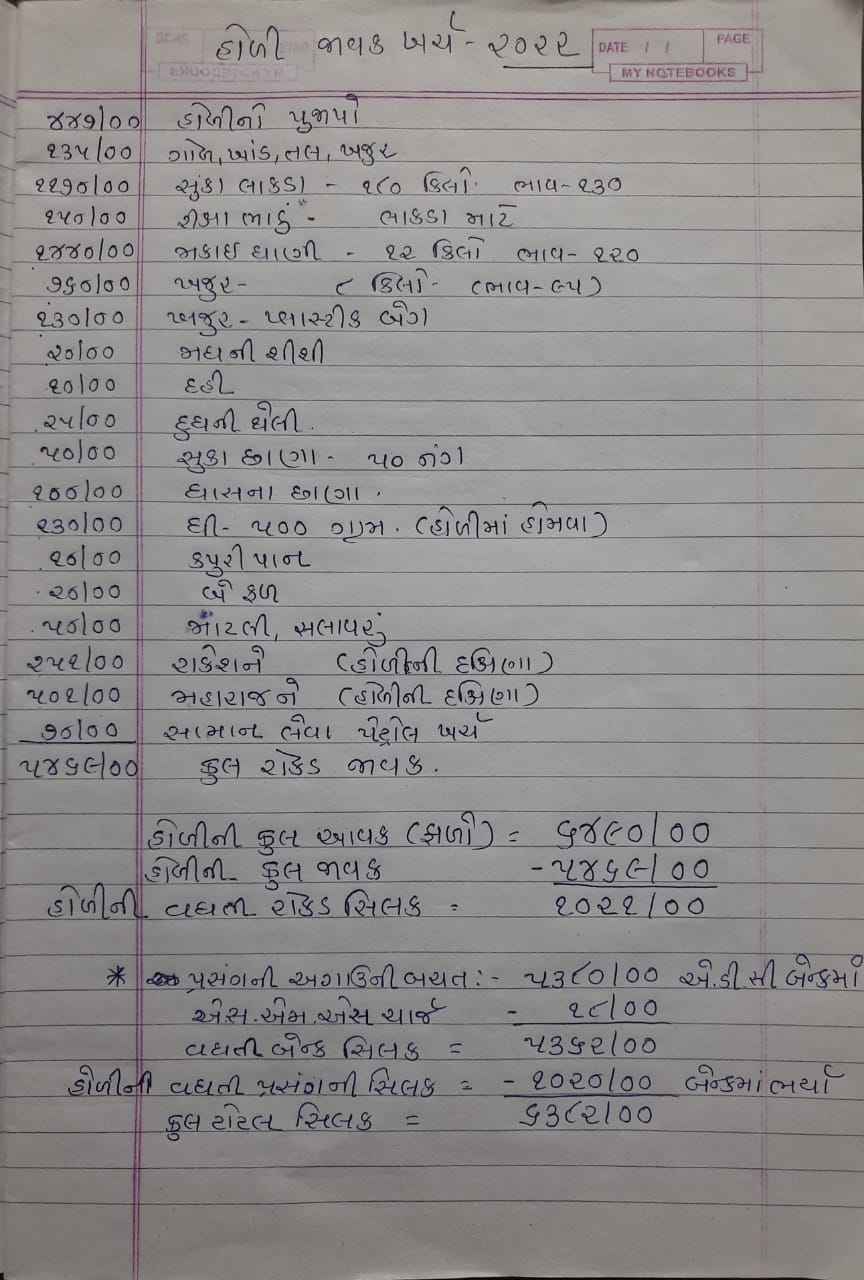 હોળી જાવક ખર્ચ - ૨૦૨૨
DATE / /
PAGE
MY NOTEBOOKS
૪૪૭/૦૦ હોળીનો પુજાપો
૧૩૫/૦૦ ગોળ, ખાંડ, તલ, ખજુર
૧૧૭૦/૦૦ સુકા લાકડા - ૧૮૦ કિલો. ભાવ - ૧૩૦
૧૫૦/૦૦ રીક્ષા ભાડું - લાકડા માટે
૧૪૪૦/૦૦ મકાઇ ધાણી - ૧૨ કિલો ભાવ - ૧૨૦
૭૬૦/૦૦ ખજુર - ૮ કિલો - (ભાવ - ૯૫)
૧૩૦/૦૦ ખજુર - પ્લાસ્ટીક બેગ
૨૦/૦૦ મધની શીશી
૧૦/૦૦ દહી
૨૫/૦૦ દુધની થેલી.
૫૦/૦૦ સુકા છાણા - ૫૦ નંગ
૧૦૦/૦૦ ઘાસના છાણા.
૧૩૦/૦૦ ઘી - ૫૦૦ ગ્રામ. (હોળીમાં હોમવા)
૧૦/૦૦ કપુરી પાન
૨૦/૦૦ બે ફળ
૫૦/૦૦ માટલી, સલાપરું
૨૫૧/૦૦ રાકેશને (હોળીની દક્ષિણા)
૫૦૧/૦૦ મહારાજને (હોળીની દક્ષિણા)
૭૦/૦૦ સામાન લેવા પેટ્રોલ ખર્ચ
૫૪૬૯/૦૦ કુલ રોકડ જાવક.
હોળીની કુલ આવક (ફાળો) = ૬૪૯૦/૦૦
હોળીની કુલ જાવક - ૫૪૬૯/૦૦
હોળીની વધતી રોકડ સિલક = ૧૦૨૧/૦૦
* પ્રસંગની અગાઉની બચત :- ૫૩૮૦/૦૦ એ.ડી.સી બેન્કમાં
એસ.એમ.એસ ચાર્જ - ૧૮/૦૦
વધતી બેન્ક સિલક = ૫૩૬૨/૦૦
હોળીની વધતી પ્રસંગની સિલક = - ૧૦૨૦/૦૦ બેન્કમાં ભર્યા
કુલ ટોટલ સિલક = ૬૩૮૨/૦૦